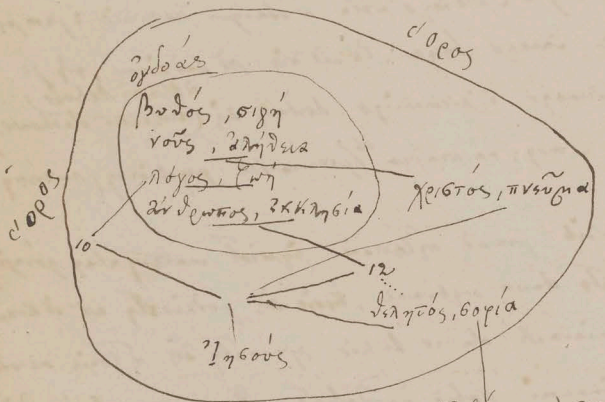 ὁ ὅρος
ὀγδοάς
βυθός, σιγή
νοῦς, ἀλήθεια
λόγος, ζωή
ἄνθρωπος, ἐκκλησία
ὁ ὅρος
χριστός, πνεῦμα
10
12
θελητός, σοφία
Ἰησούς